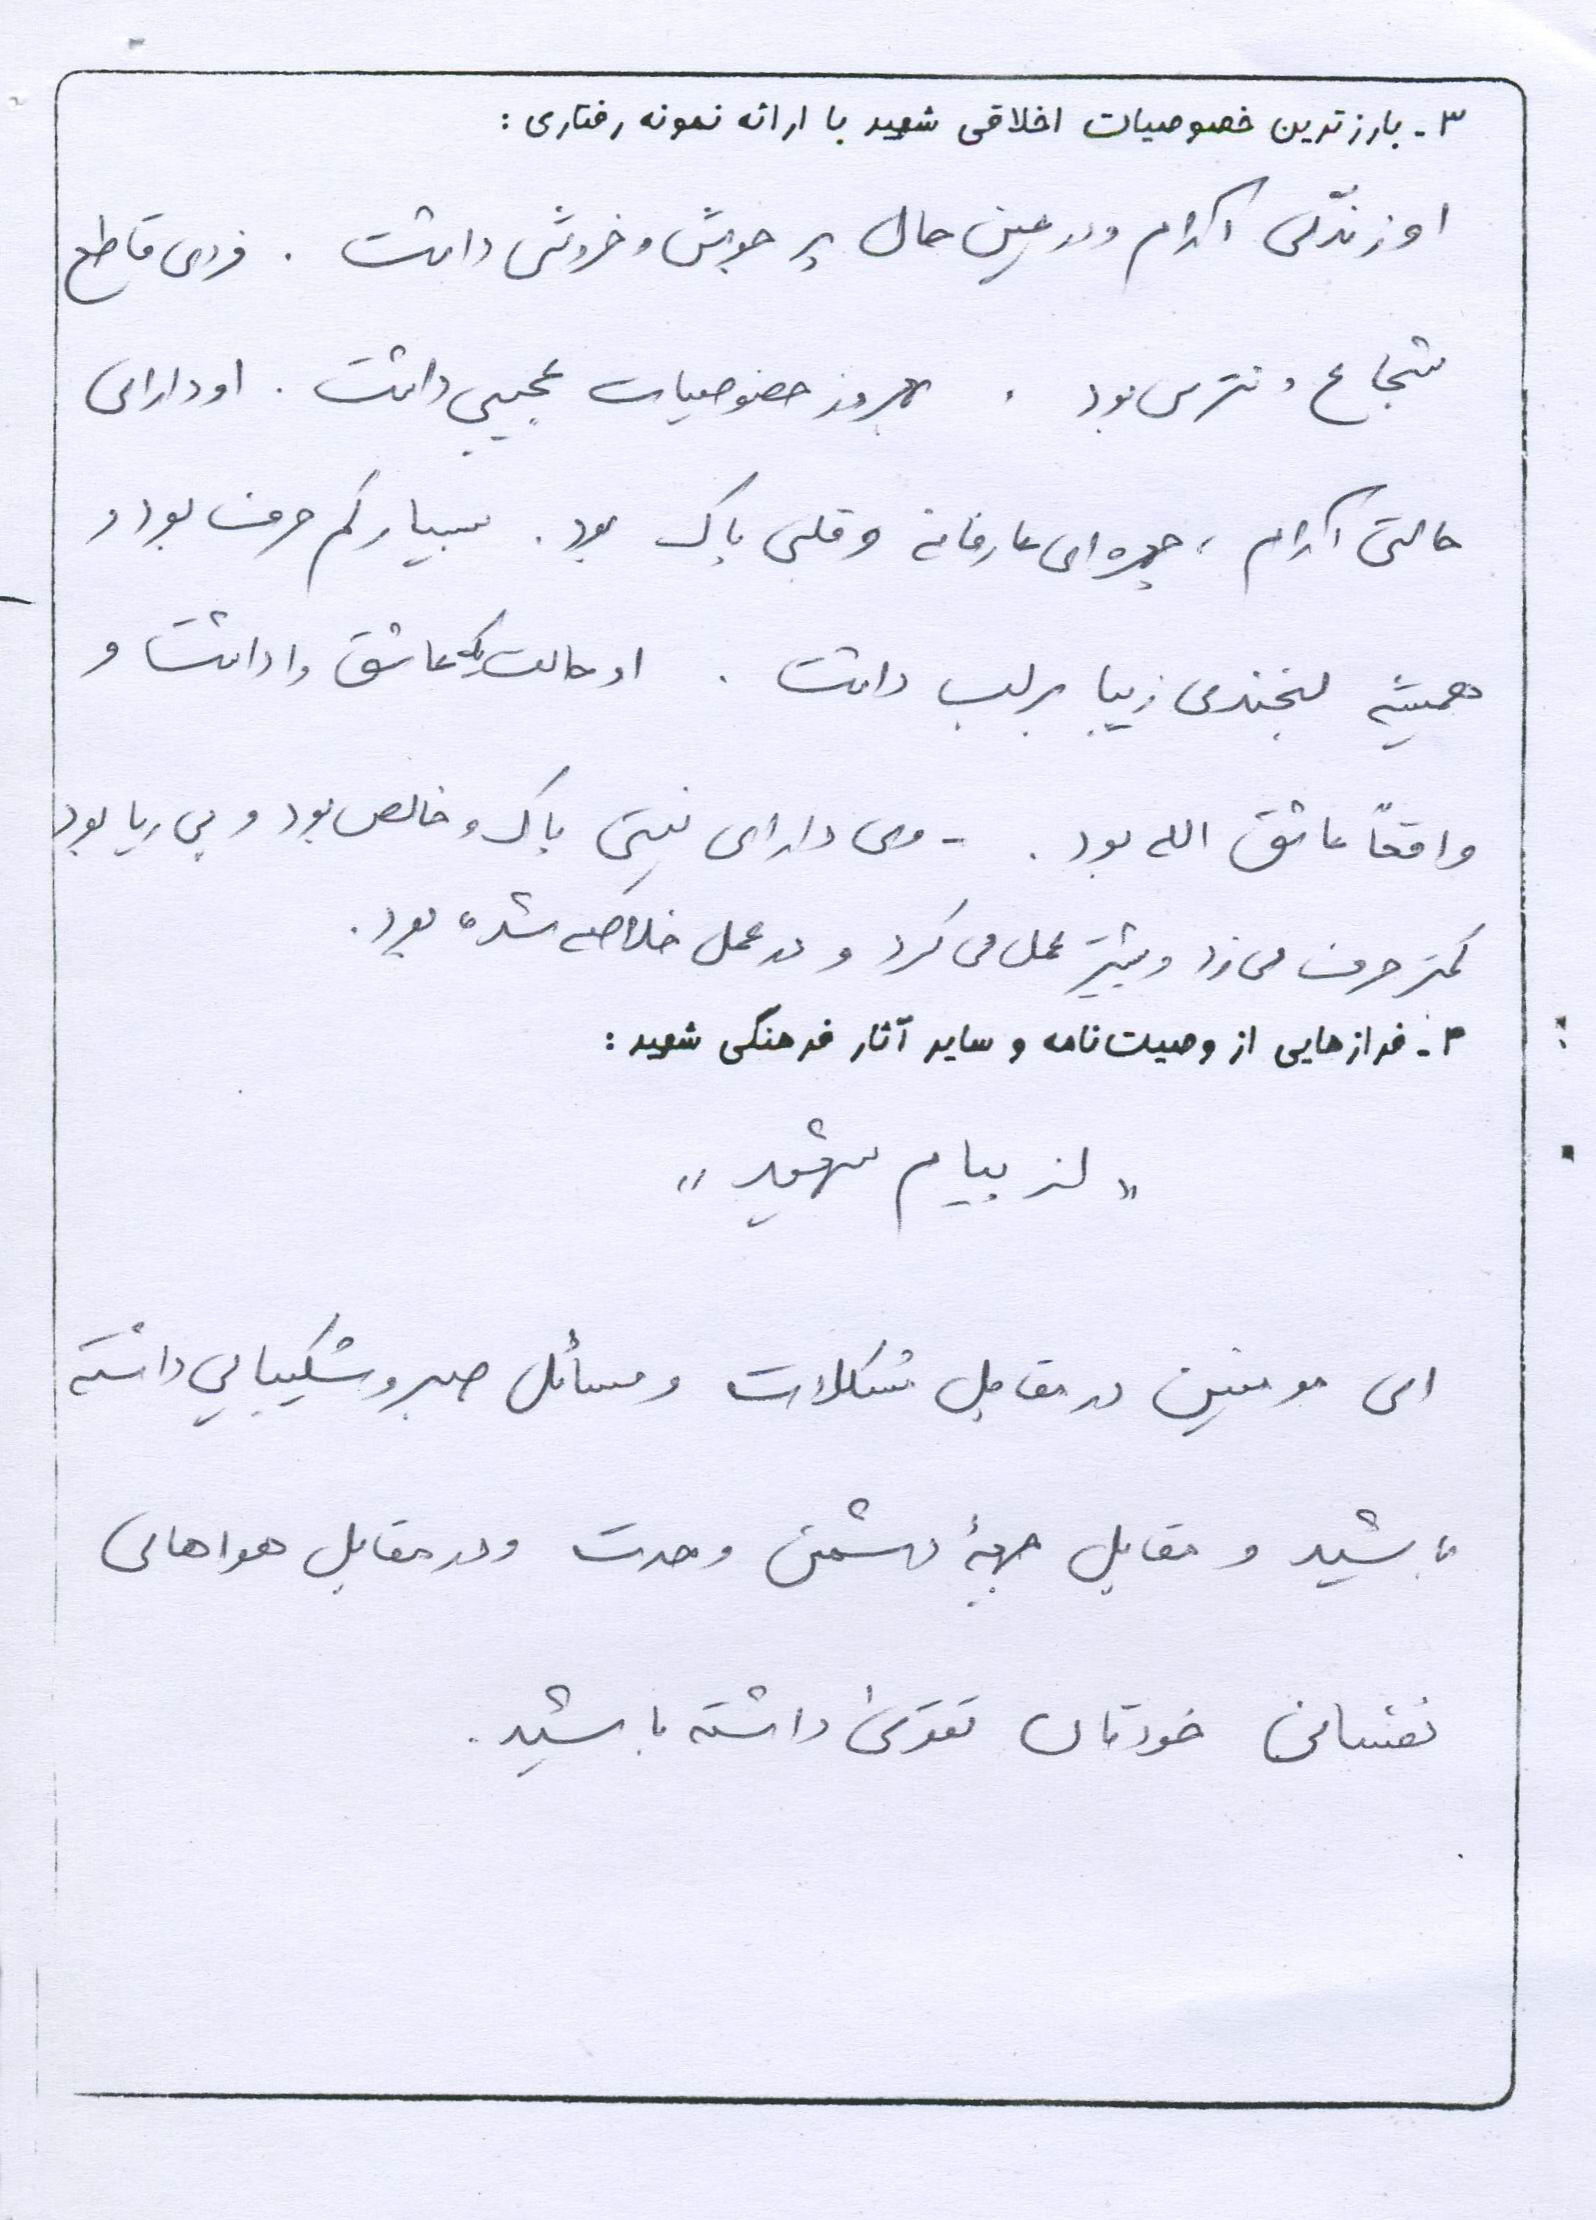 ۳- بارزترین خصوصیات اخلاقی شهید با ارائه نمونه رفتاری:
او زندگی آرام و در عین حال پر جوش و خروشی داشت . فردی قاطع
شجاع و نترس بود . بهروز خصوصیات عجیبی داشت . او دارای
حالتی آرام ، چهره ای عارفانه و قلبی پاک بود . بسیار کم حرف بود و
همیشه لبخندی زیبا بر لب داشت . او حالت یک عاشق را داشت و
واقعاً عاشق الله بود . - وی دارای نیتی پاک و خالص بود و بی ریا بود
کمتر حرف می زد و بیشتر عمل می کرد و در عمل خلاصه شده بود .
۴- فرازهایی از وصیت‌نامه و سایر آثار فرهنگی شهید:
« از پیام شهید »
ای مومنین در مقابل مشکلات و مسائل صبر و شکیبایی داشته
باشید و مقابل جبههٔ دشمن وحدت و در مقابل هواهای
نفسانی خودتان تقوی داشته باشید .